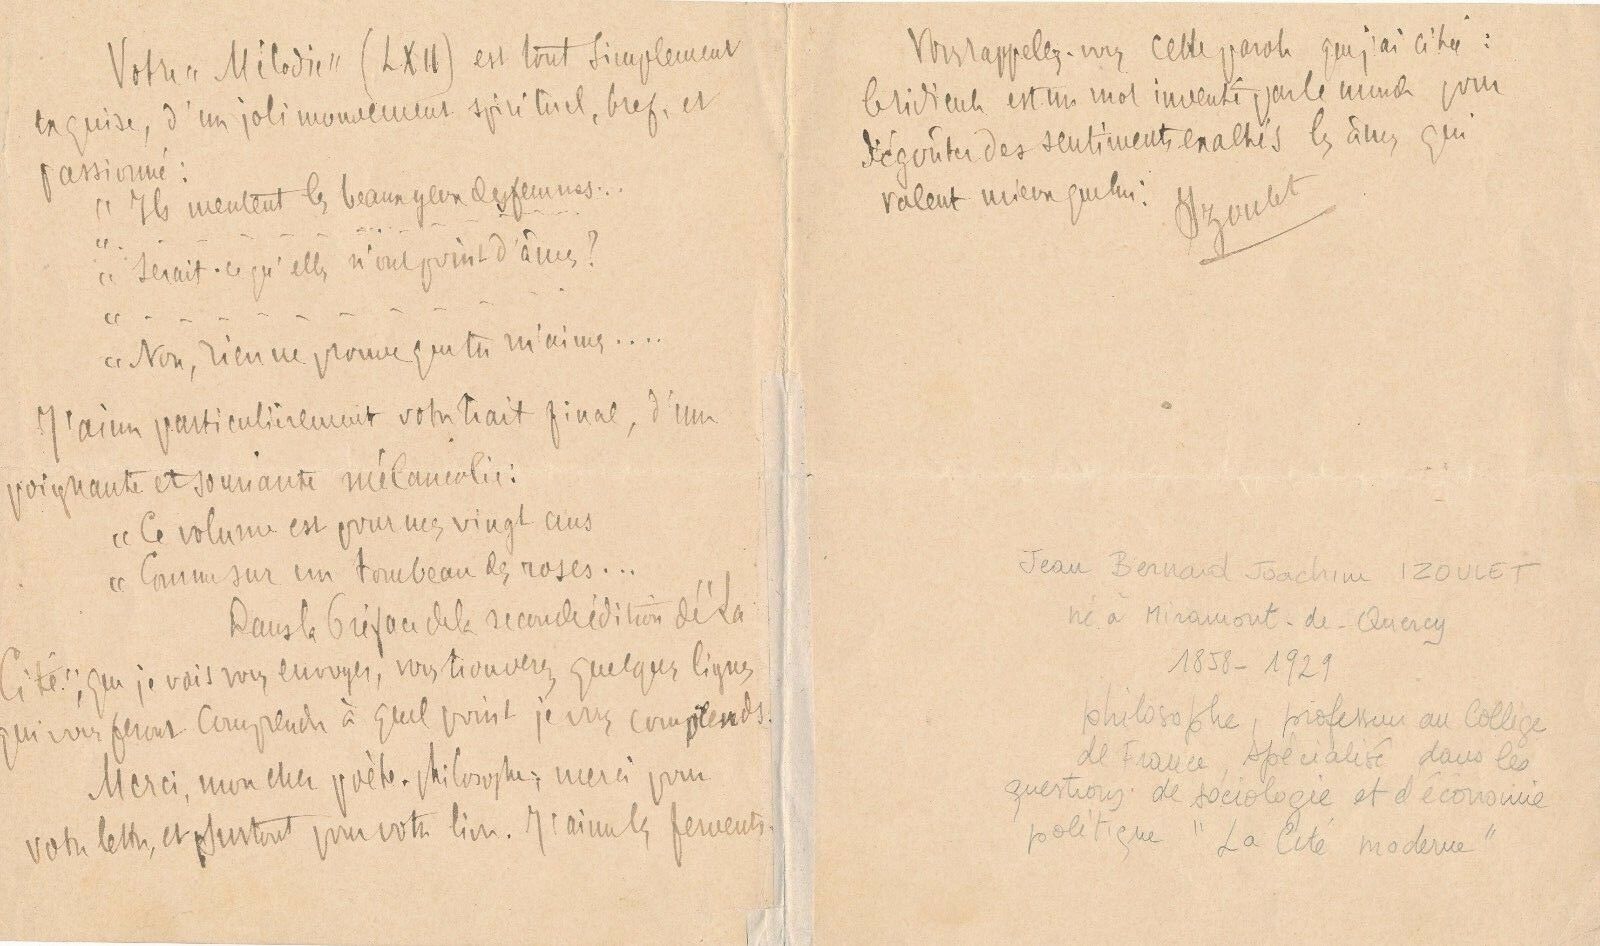 Votre "Mélodie" (LXII) est tout simplement
exquise, d'un joli mouvement spirituel, bref, et
passionné :
" Ils mentent les beaux yeux des femmes...
"
" Serait-ce qu'elles n'ont point d'âmes ?
"
" Non, rien ne prouve que tu m'aimes....
J'aime particulièrement votre trait final, d'une
poignante et souriante mélancolie :
" Ce volume est pour mes vingt ans
" Comme sur un tombeau des roses...
Dans la Préface de la seconde édition de "La
Cité", que je vais vous envoyer, vous trouverez quelques lignes
qui vous feront comprendre à quel point je vous comprends.
Merci, mon cher poète-philosophe, merci pour
votre lettre, et surtout pour votre livre. J'aime les fervents.
Vous rappelez-vous cette parole que j'ai citée :
le ridicule est un mot inventé par le monde pour
dégoûter des sentiments exaltés les âmes qui
valent mieux que lui :
Izoulet
Jean Bernard Joachim IZOULET
né à Miramont-de-Quercy
1858-1929
philosophe, professeur au Collège
de France, spécialisé dans les
questions de sociologie et d'économie
politique "La Cité moderne"